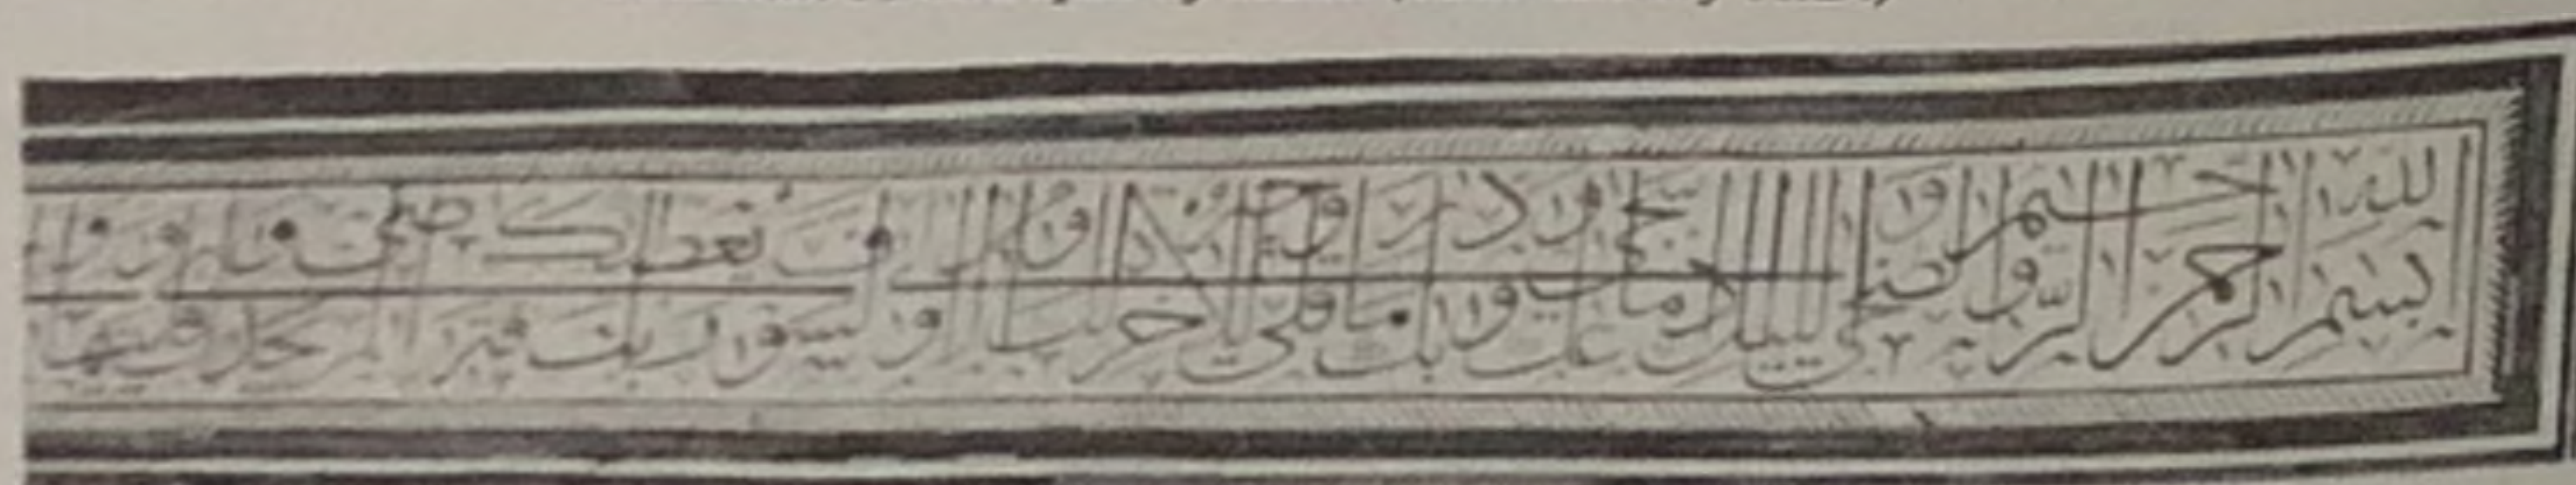 بسم الله الرحمن الرحيم والضحى والليل إذا سجى ما ودعك ربك وما قلى وللآخرة خير لك من الأولى ولسوف يعطيك ربك فترضى ألم يجدك يتيما فآوى